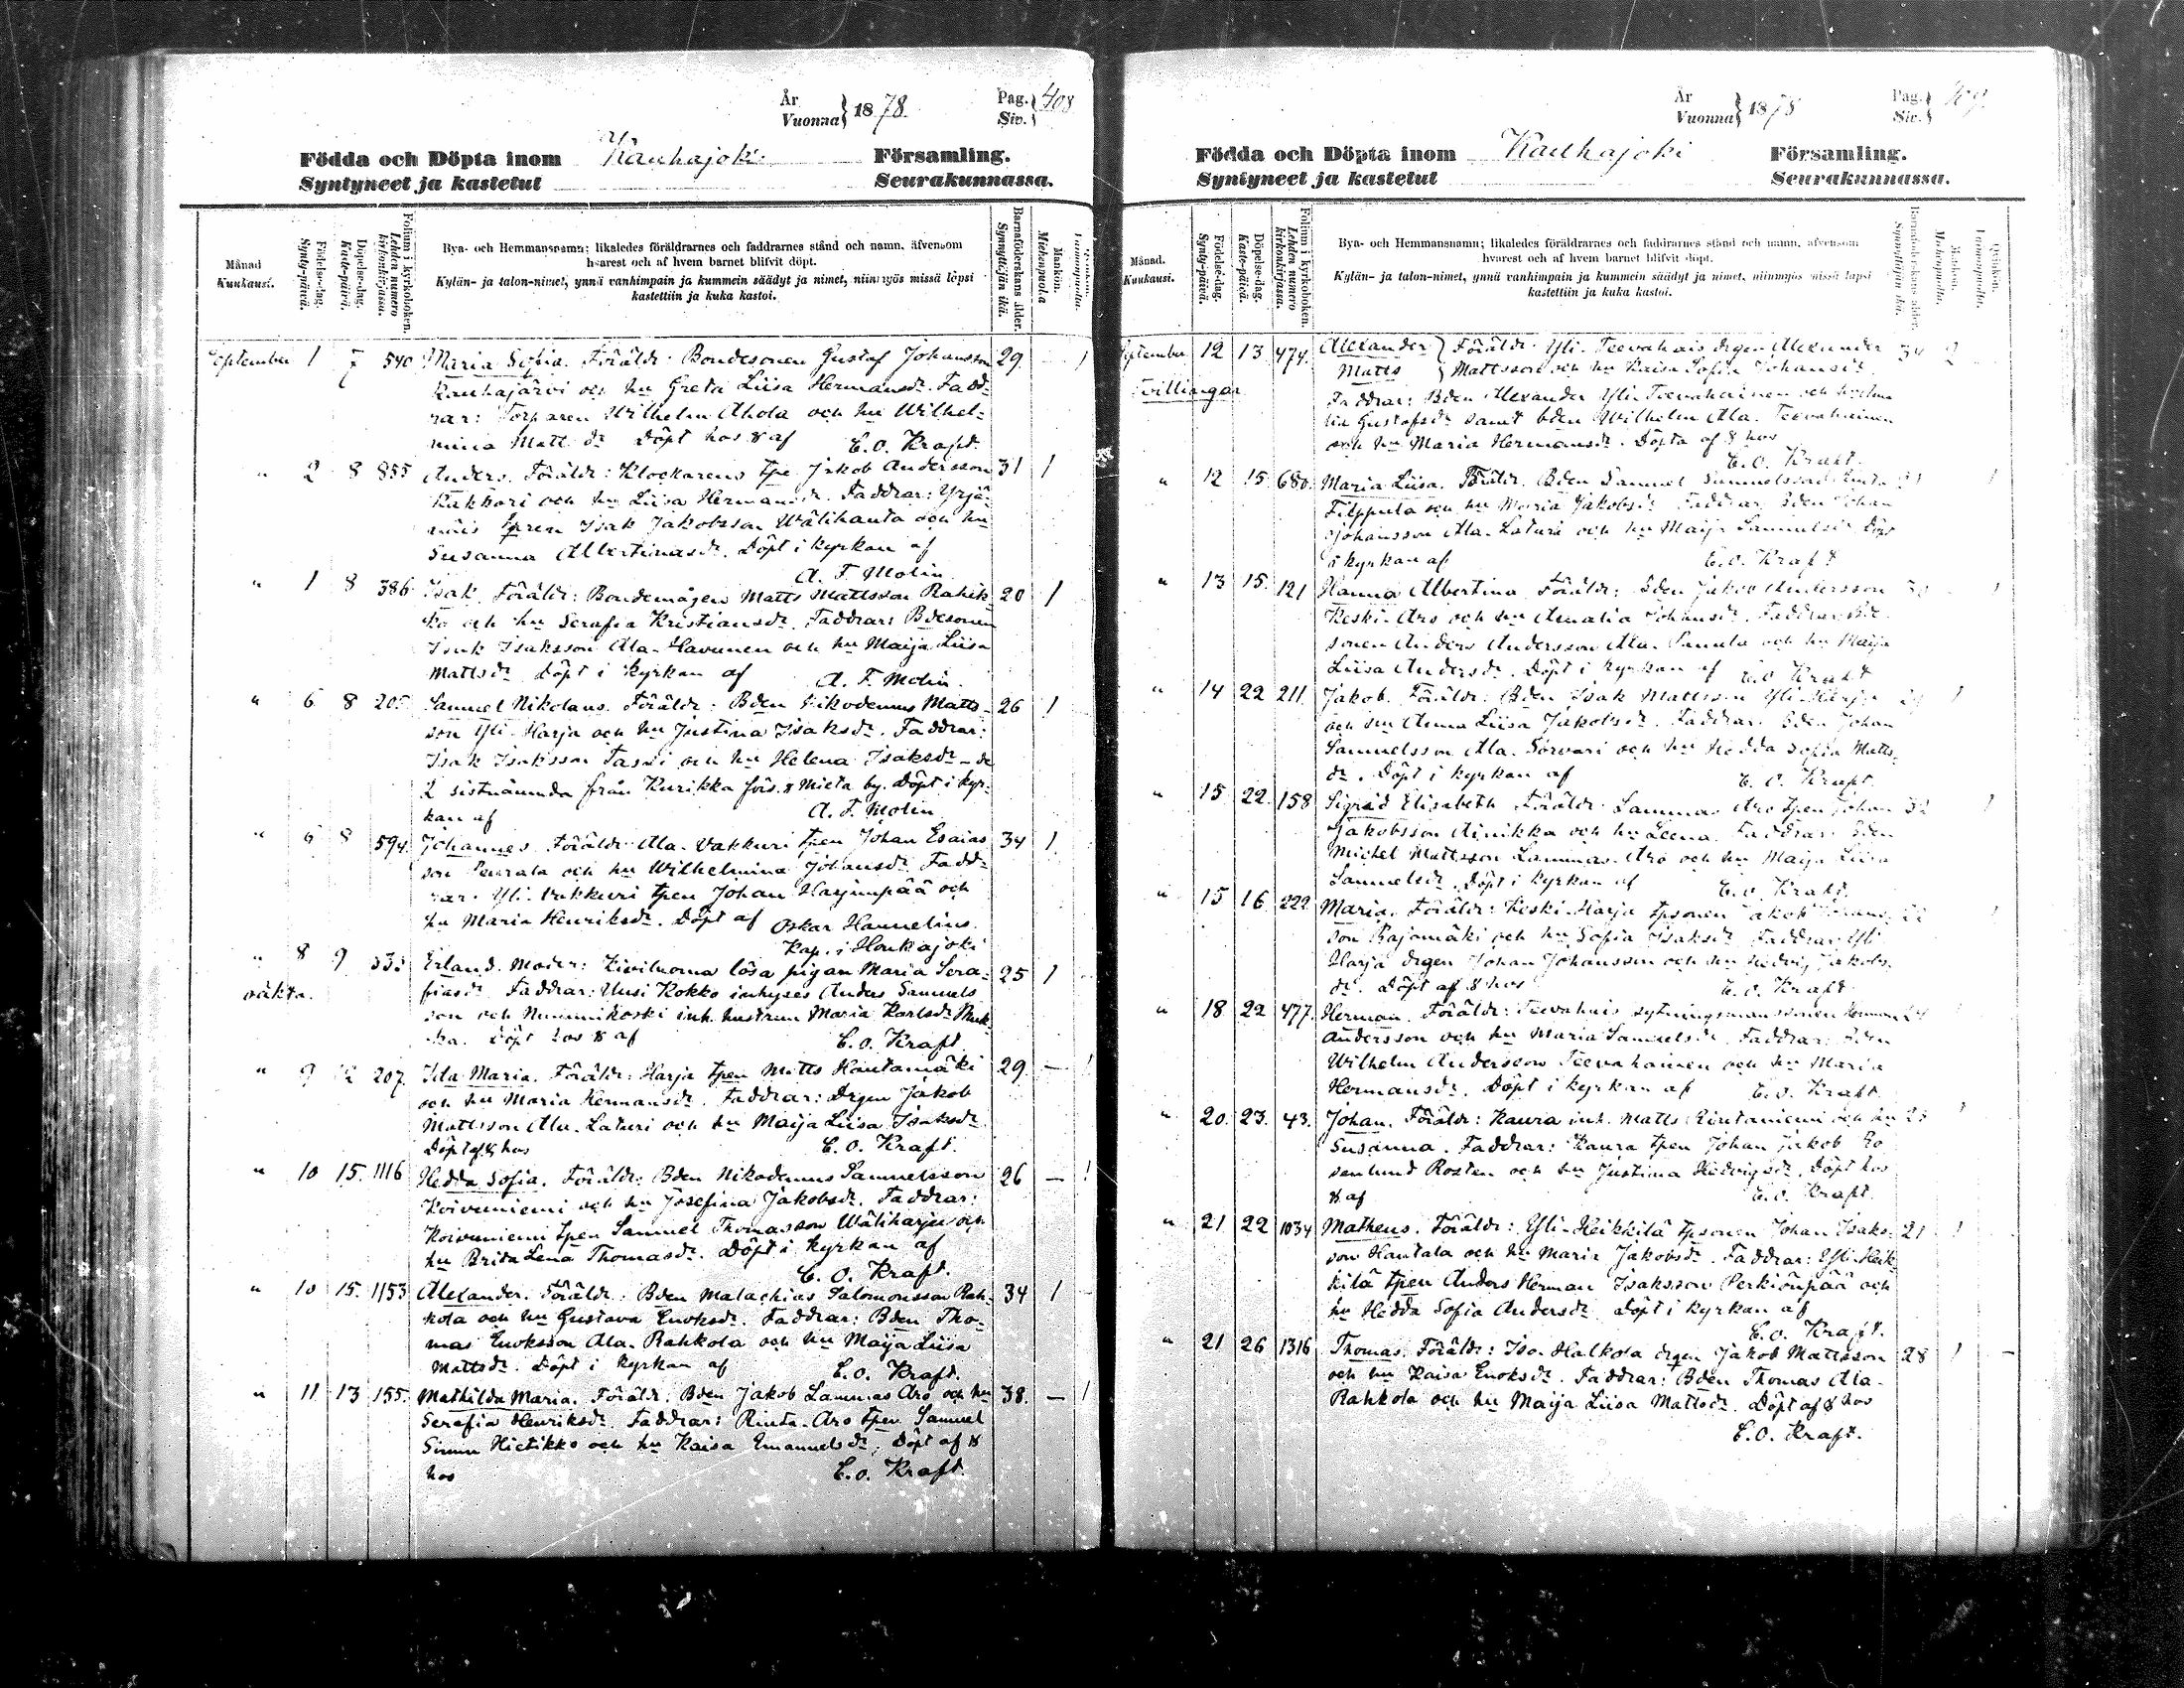 År
Vuonna } 1878.
Pag.
Siv. } 408
Födda och Döpta inom Kauhajoki Församling.
Syntyneet ja kastetut Seurakunnassa.
Månad
Kuukausi.
Födelse-dag.
Synty-päivä.
Döpelse-dag.
Kaste-päivä.
Folium i kyrkoboken.
Lehden numero
kirkonkirjassa.
Bya- och Hemmansnamn; likaledes föräldrarnes och faddrarnes stånd och namn, äfvensom
hvarest och af hvem barnet blifvit döpt.
Kylän- ja talon-nimet, ynnä vanhimpain ja kummein säädyt ja nimet, niinmyös missä lapsi
kastettiin ja kuka kastoi.
Barnaföderskans ålder.
Synnyttäjän ikä.
Mankön.
Miehenpuolia
September 1 7 540 Maria Sofia. Föräldr. Bondesonen Gustaf Johansson 29. - 1
Kauhajärvi och hu Greta Liisa Hermansdr. Fadd-
rar: Torparen Wilhelm Ahola och hu Wilhel-
mina Matt dr Döpt hos 8 af E.O. Kraft.
" 2 8 855 Anders. Föräldr: Klockarens tpe Jakob Andersson 31 1
Kukkari och hu Liisa Hermansdr. Faddrar: Yrjä-
näis tpren Isak Jakobsson Wälihauta och hu
Susanna Albertinasdr. Döpt i kyrkan af
A. F. Molin.
" 1 8 386 Isak. Föräldr: Bondemågen Matts Mattsson Rahik- 20 1
ko och hu Serafia Kristiansdr. Faddrar: Bdesonen
Isak Isaksson Ala-Havunen och hu Maija Liisa
Mattsdr. Döpt i kyrkan af A. F. Molin.
" 6 8 205 Samuel Nikolaus. Föräldr: Bden Nikodemus Matts- 26 1
son Yli-Harja och hu Justina Isaksdr. Faddrar:
Isak Isaksson Tassi och hu Helena Isaksdr - de
2 sistnämnda från Kurikka förs. & Mieta by. Döpt i kyr-
kan af A. F. Molin
" 6 8 594 Johannes. Föräldr: Ala-Vakkuri tpen Johan Esaias 34 1
son Peurala och hu Wilhelmina Johansdr. Fadd-
rar: Yli-Vakkuri tpen Johan Harjunpää och
hu Maria Henriksdr. Döpt af Oskar Hannelius.
Kap. i Honkajoki
" 8 9 Erland. Moder: Kiviluoma lösa pigan Maria Sera- 25 1
oäkta. fiasdr. Faddrar: Uusi Kokko inhyses Anders Samuels
son och Nummikoski inh. hustrun Maria Karlsdr
Döpt hos 8 af E.O. Kraft.
" 9 12 207. Ida Maria. Föräldr: Harja tpen Matts Hautamäki 29 - 1
och hu Maria Hermansdr. Faddrar: Drgen Jakob
Mattsson Ala-Laturi och hu Maija Liisa Isaksdr.
Döpt af 8 hos E.O. Kraft.
" 10 15. 1116 Hedda Sofia. Föräldr: Bden Nikodemus Samuelsson 26 - 1
Koivuniemi och hu Josefina Jakobsdr. Faddrar:
Koivuniemi tpen Samuel Thomasson Wäliharju och
hu Brita Lena Thomasdr. Döpt i kyrkan af
E. O. Kraft.
" 10 15. 1153 Alexander. Föräldr: Bden Malachias Salomonsson Rah- 34 1
kola och hu Gustava Enoksdr. Faddrar: Bden Tho-
mas Enoksson Ala-Rahkola och hu Maija Liisa
Mattsdr. Döpt i kyrkan af E.O. Kraft.
" 11 13 155. Mathilda Maria. Föräldr. Bden Jakob Lammas Aro och hu 38. - 1
Serafia Henriksdr. Faddrar: Rinta-Aro tpen Samuel
Simm Hietikko och hu Kaisa Emanuelsdr; Döpt af 8
hos E.O. Kraft.
År
Vuonna } 1878
Pag.
Siv. } 409.
Födda och Döpta inom Kauhajoki Församling.
Syntyneet ja kastetut Seurakunnassa.
Månad.
Kuukausi.
Födelse-dag.
Synty-päivä.
Döpelse-dag.
Kaste-päivä.
Folium i kyrkoboken.
Lehden numero
kirkonkirjassa.
Bya- och Hemmansnamn; likaledes föräldrarnes och faddrarnes stånd och namn, äfvensom
hvarest och af hvem barnet blifvit döpt.
Kylän- ja talon-nimet, ynnä vanhimpain ja kummein säädyt ja nimet, niinmyös missä lapsi
kastettiin ja kuka kastoi.
Barnaföderskans ålder.
Synnyttäjän ikä.
Mankön.
Miehenpuolia.
Qvinkön.
Vaimonpuolia.
September 12 13 474. Alexander } Föräldr. Yli-Teevahais drgen Alexander 34 2
Tvillingar Matts } Mattsson och hu Kaisa Sofia Johansdr.
Faddrar: Bden Alexander Yli-Teevahainen och
Gustafsdr samt bden Wilhelm Ala-Teevahainen
och hu Maria Hermansdr. Döpta af 8 hos
E.O. Kraft.
" 12 15. 680. Maria Liisa. Föräldr. Bden Samuel Samuelsson
Filppula och hu Maria Jakobsdr. Faddrar: Bden Johan
Johansson Ala-Laturi och hu Maija Samuelsdr. Döpt
i kyrkan af E.O. Kraft
" 13 15. 121 Hanna Albertina. Föräldr: Bden Jakob Andersson
Keski-Aro och hu Amalia Johansdr. Faddrar: Bde
sonen Anders Andersson Ala-Panula och hu Maija
Liisa Andersdr. Döpt i kyrkan af E.O. Kraft
" 14 22 211. Jakob. Föräldr: Bden Isak Mattsson Yli-Harja
och hu Anna Liisa Jakobsdr. Faddrar: Bden Johan
Samuelsson Ala-Sorvari och hu Hedda Sofia Matts-
dr. Döpt i kyrkan af E. O. Kraft.
" 15 22. 158 Sigrid Elisabeth. Föräldr: Lammas Aro tpen Johan 32
Jakobsson Ainikka och hu Leena. Faddrar: Bden
Michel Mattsson Lammas-Aro och hu Maija Liisa
Samuelsdr. Döpt i kyrkan af E.O. Kraft.
" 15 16. 222 Maria. Föräldr: Keski-Harja tpsonen Jakob
son Rajamäki och hu Sofia Isaksdr. Faddrar: Yli-
Harja drgen Johan Johansson och hu Hedvig Jakobs-
dr. Döpt af 8 hos E.O. Kraft
" 18 22 477. Herman. Föräldr: Teevahais sytningsmanssonen Herman 24
Andersson och hu Maria Samuelsdr. Faddrar: Bden
Wilhelm Andersson Teevahainen och hu Maria
Hermansdr. Döpt i kyrkan af E.O. Kraft.
" 20. 23. 43. Johan. Föräldr: Kaura inh. Matts Rintaniemi och hu
Susanna. Faddrar: Kaura tpen Johan Jakob Ro
senlund Rosten och hu Justina Hedvigsdr. Döpt hos
8 af E.O. Kraft.
" 21 22 1034 Matheus. Föräldr: Yli-Heikkilä tpsonen Johan Isaks- 21 1
son Hautala och hu Maria Jakobsdr. Faddrar: Yli-Heik-
kilä tpen Anders Herman Isaksson Perkiönpää och
hu Hedda Sofia Andersdr. Döpt i kyrkan af
E.O. Kraft.
" 21 26 1316 Thomas. Föräldr: Iso-Halkola drgen Jakob Mattsson 28 1 -
och hu Kaisa Enoksdr. Faddrar: Bden Thomas Ala-
Rahkola och hu Maija Liisa Mattsdr. Döpt af 8 hos
E.O. Kraft.